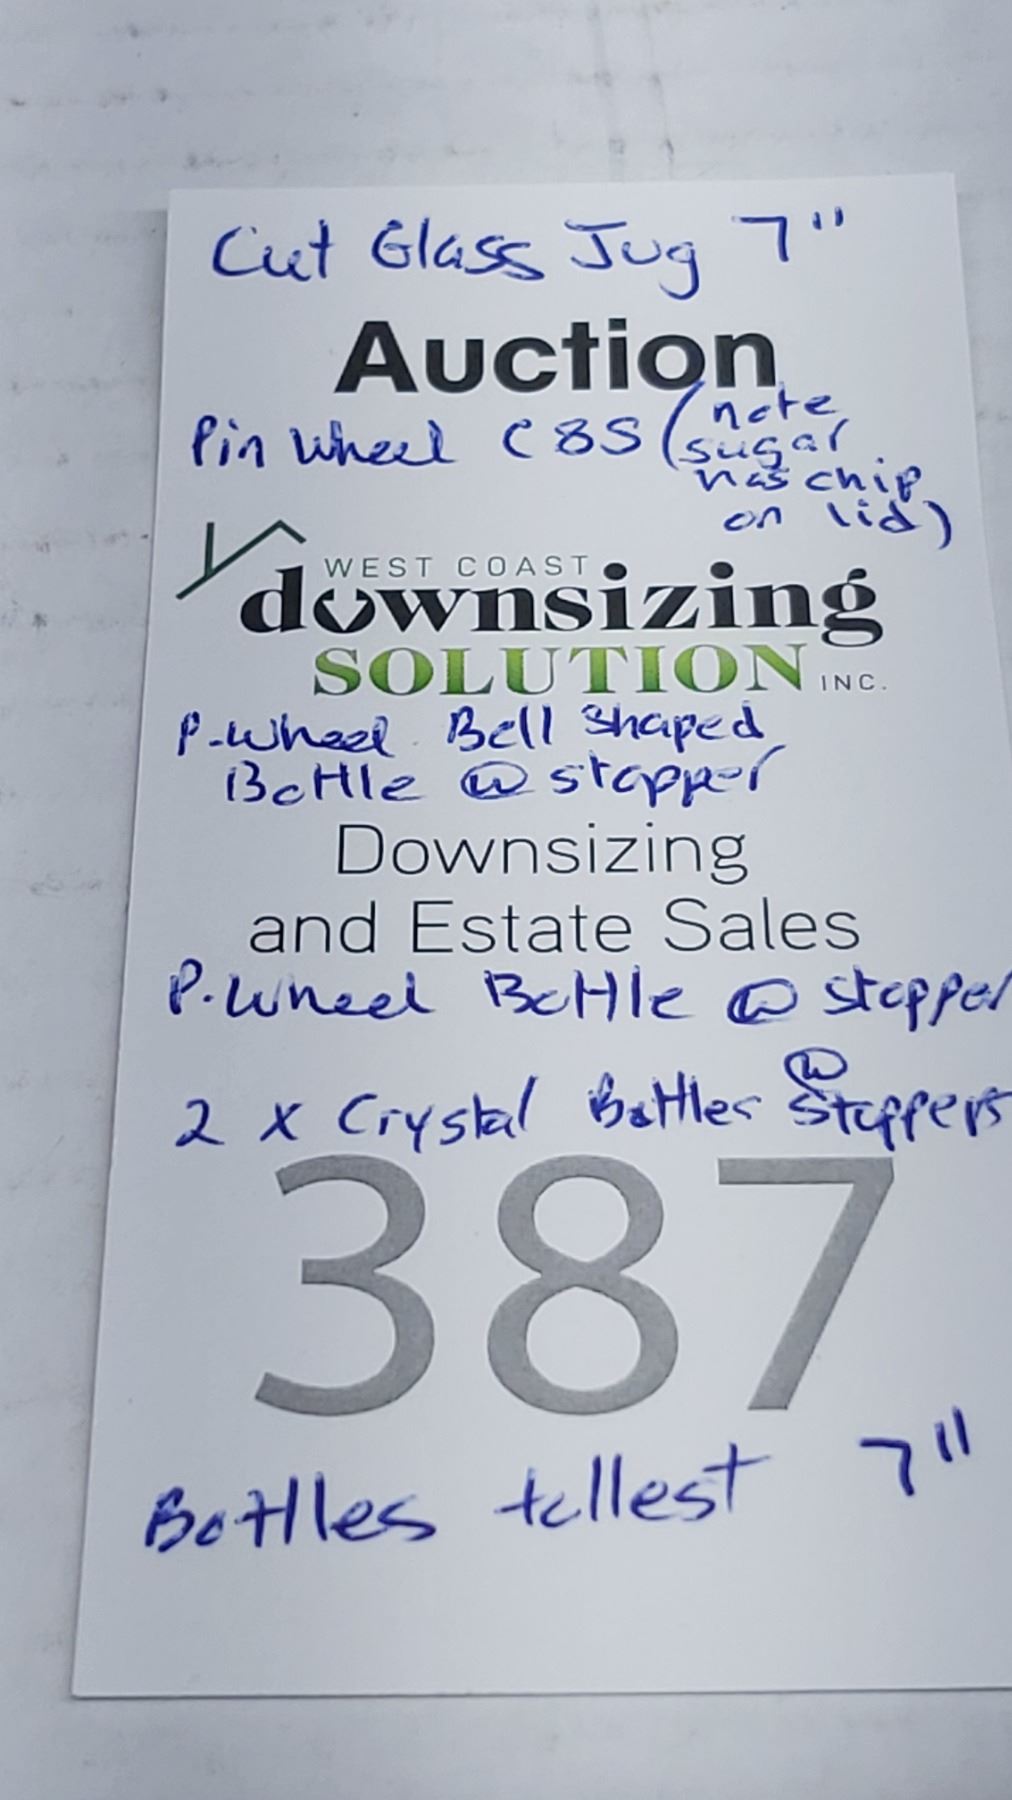 Cut Glass Jug 7"
Auction
Pin Wheel C&S (note
sugar
has chip
on lid)
WEST COAST
downsizing
SOLUTION INC.
P-Wheel Bell Shaped
Bottle @ stopper
Downsizing
and Estate Sales
P.Wheel Bottle @ stopper
2 x Crystal Bottles @ Stoppers
387
Bottles tallest 7"